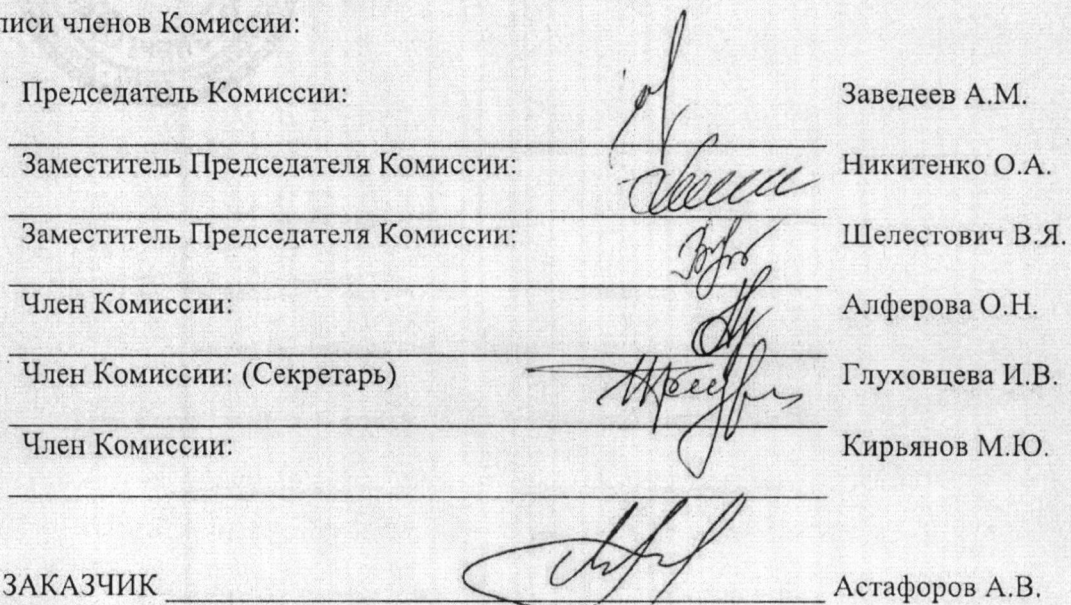 писи членов Комиссии:
Председатель Комиссии: Заведеев А.М.
Заместитель Председателя Комиссии: Никитенко О.А.
Заместитель Председателя Комиссии: Шелестович В.Я.
Член Комиссии: Алферова О.Н.
Член Комиссии: (Секретарь) Глуховцева И.В.
Член Комиссии: Кирьянов М.Ю.
ЗАКАЗЧИК Астафоров А.В.